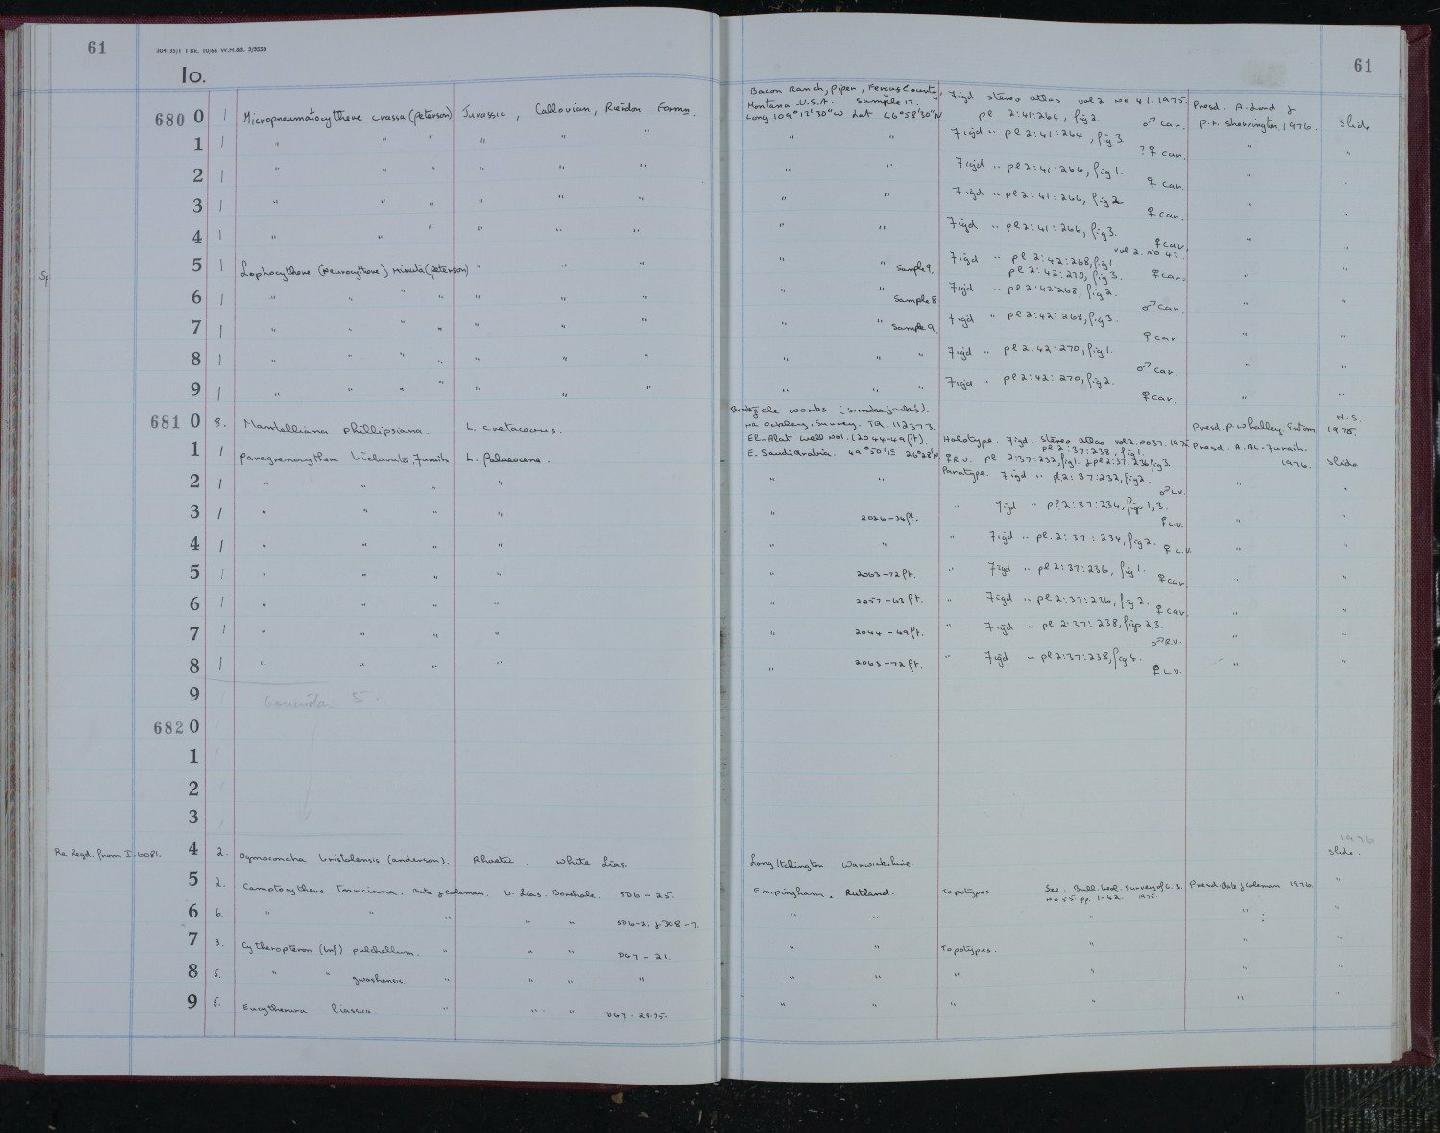 61
61
Io.
680 0 1 Micropneumatocythere crassa (Peterson) Jurassic, Callovian, Rierdon Formn. Bacon Ranch, Piper, Fergus County, Montana U.S.A. Sample 17. Long 109°12'30"W Lat 46°58'30"N Figd stereo atlas vol 2 no 41. 1975. pl 2:41:264, fig 2. ♂ car. Presd. A. Lord & P.r. Sherrington, 1976. Slide
1 1 " " " " " " " " Figd " pl 2:41:264, fig 3 ?♀ car. " "
2 1 " " " " " " " " Figd " pl 2:41:266, fig 1. ♀ car. " "
3 1 " " " " " " " " Figd " pl 2:41:266, fig 2 ♀ car. " "
4 1 " " " " " " " " Figd " pl 2:41:266, fig 3. ♀ car. " "
Sf
5 1 Lophocythere (Neurocythere) minuta (Peterson) " " " " " Sample 9. Figd " pl 2:42:268, fig 1 vol 2. no 42. pl 2:42:270, fig 3. ♀ car. " "
6 1 " " " " " " " " Sample 8 Figd " pl 2:42:268, fig 2. ♂ car. " "
7 1 " " " " " " " " " Sample 9. Figd " pl 2:42:268, fig 3. ♀ car " "
8 1 " " " " " " " " " " Figd " pl 2:42:270, fig 1. ♂ car. " "
9 1 " " " " " " " " " " Figd " pl 2:42:270, fig 2. ♀ car. " "
681 0 8. Mantelliana phillipsiana. L. Cretaceous. Ockley, Surrey. TQ 112373. Presd. P. Whalley, Entom 1975. H.S.
1 1 L. Palaeocene. El-Alat Well No1. (2044-49 ft). E. Saudi Arabia. 49°50'15 26°28'N Holotype. Figd stereo atlas vol 2. no 37. 1975 pl 2:37:238, fig 1. ♀ R.V. pl 2:37:232, fig 1. & pl 2:37:236 fig 3. Presd. A. Al-Furaih. 1976. Slide
2 1 " " " " " " Paratype. Figd " pl 2:37:232, fig 2. ♂ L.V. " "
3 1 " " " " " 2026-36 ft. " Figd " pl 2:37:234, figs 1, 3. ♀ L.V. " "
4 1 " " " " " " " Figd " pl. 2:37:234, fig 2. ♀ L.V. " "
5 1 " " " " " 2063-72 ft. " Figd " pl 2:37:236, fig 1. ♀ car. " "
6 1 " " " " " 2057-63 ft. " Figd " pl 2:37:236, fig 2. ♀ car. " "
7 1 " " " " " 2044-49 ft. " Figd " pl 2:37:238, figs 2 3. ♂ R.V. " "
8 1 " " " " " 2063-72 ft. " Figd " pl 2:37:238, fig 4. ♀ L.V. " "
9
682 0
1
2
3
Re Regd. from I. 6081. 4 2. Ogmoconcha bristolensis (Anderson). Rhaetic. White Lias. Long Itchington Warwickshire. 1976 Slide.
5 2. Camptocythere Bate & Coleman. U. Lias. Borehole. SD6-25. Empingham, Rutland. Topotypes See. Bull. Geol. Survey of G.B. no 55 pp. 1-42. 1975. Presd. Bate & Coleman 1976. "
6 6. " " " " " " " " " " "
7 3. Cytheropteron (Inf) pulchellum. " " " DG7-21. " " Topotypes. " " "
8 5. " " gwashensis " " " " " " " " " "
9 5. Eucytherura liassica " " " DG7-24.25. " " " " " "